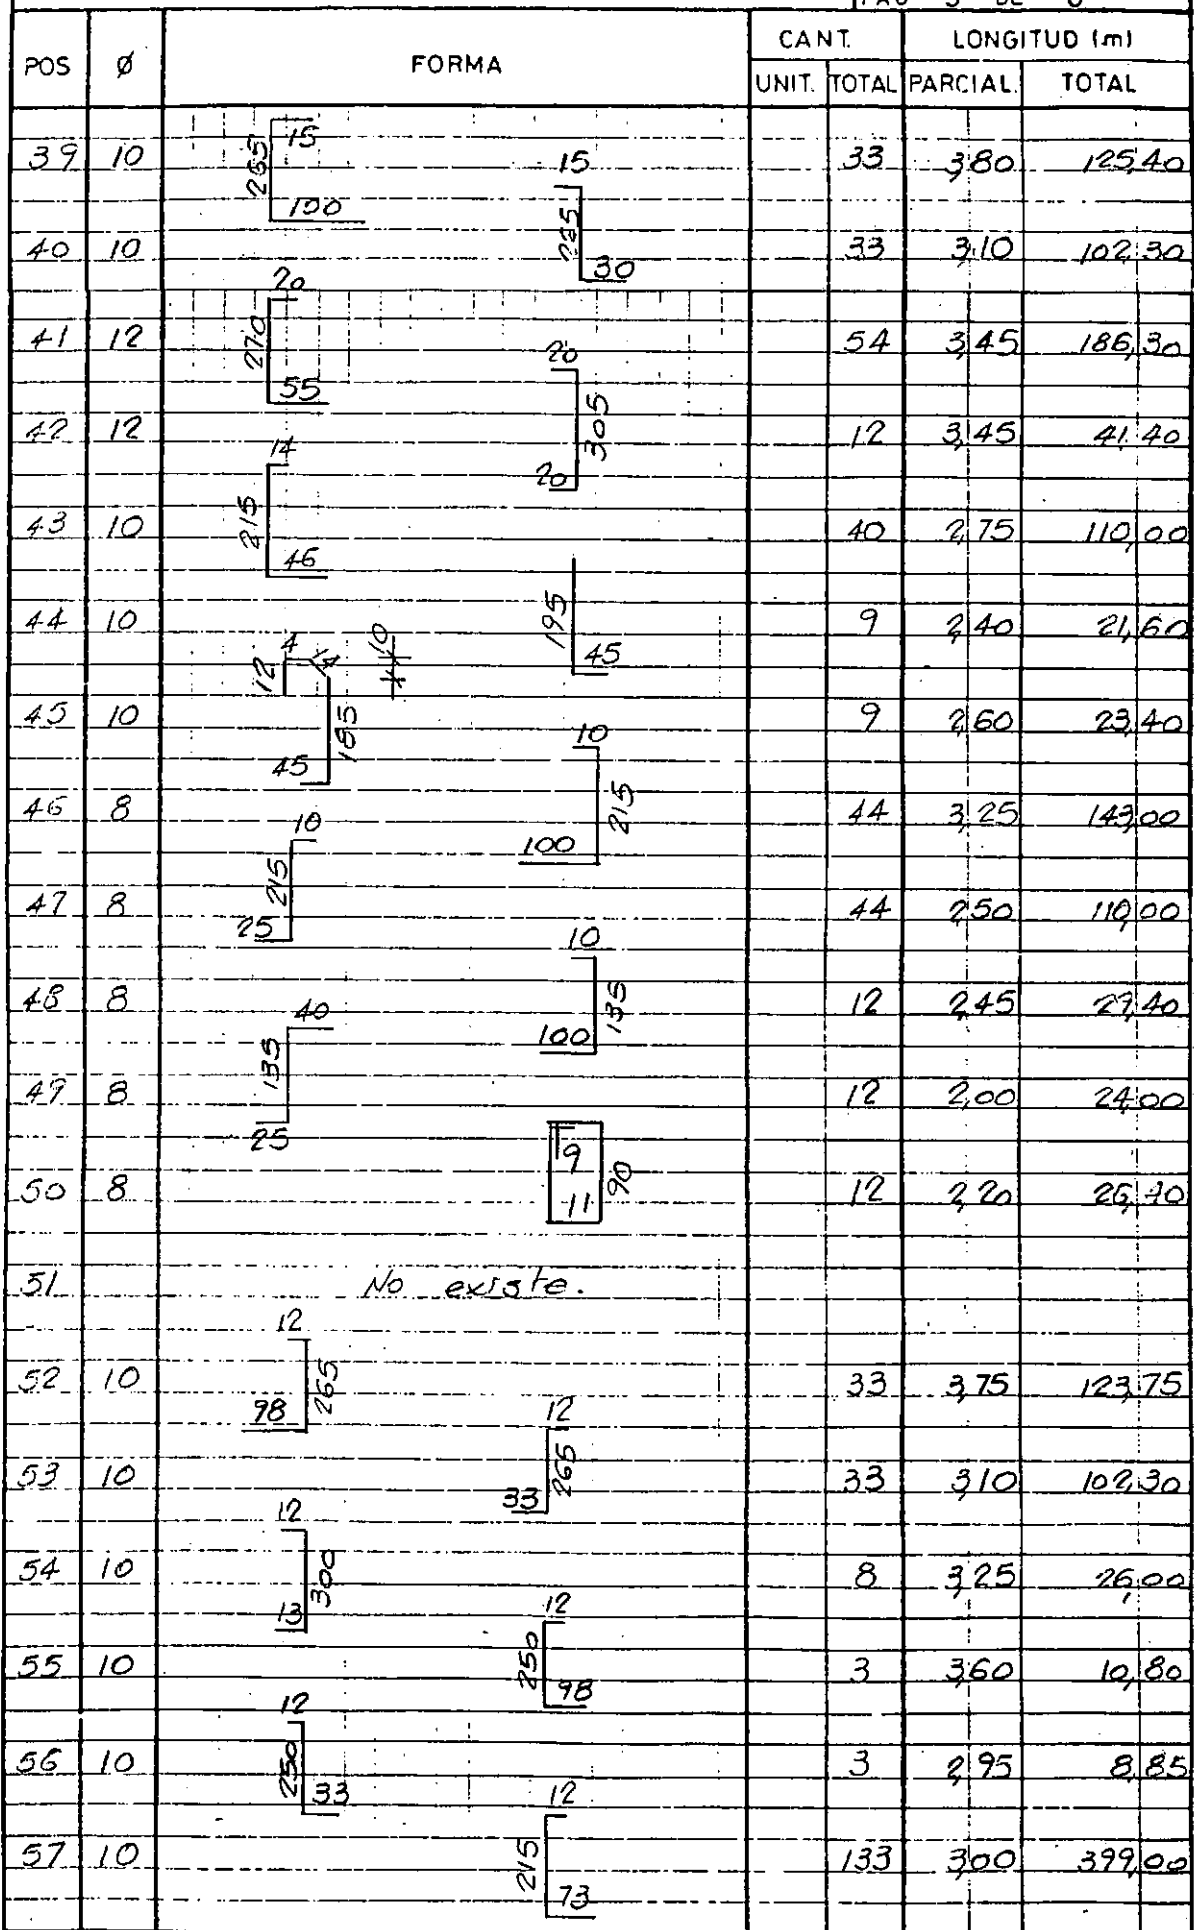 PAG 5 DE
POS Ø FORMA CANT. LONGITUD (m)
UNIT. TOTAL PARCIAL. TOTAL
39 10 15 265 100 33 3,80 125,40
40 10 15 265 30 33 3,10 102,30
41 12 20 270 55 54 3,45 186,30
42 12 20 305 20 12 3,45 41,40
43 10 14 215 46 40 2,75 110,00
44 10 195 45 9 2,40 21,60
45 10 12 4 14 10 185 45 9 2,60 23,40
46 8 10 215 100 44 3,25 143,00
47 8 10 215 25 44 2,50 110,00
48 8 10 135 100 12 2,45 29,40
49 8 40 135 25 12 2,00 24,00
50 8 9 11 90 12 2,20 26,40
51 No existe.
52 10 12 265 98 33 3,75 123,75
53 10 12 265 33 33 3,10 102,30
54 10 12 300 13 8 3,25 26,00
55 10 12 250 98 3 3,60 10,80
56 10 12 250 33 3 2,95 8,85
57 10 12 215 73 133 3,00 399,00